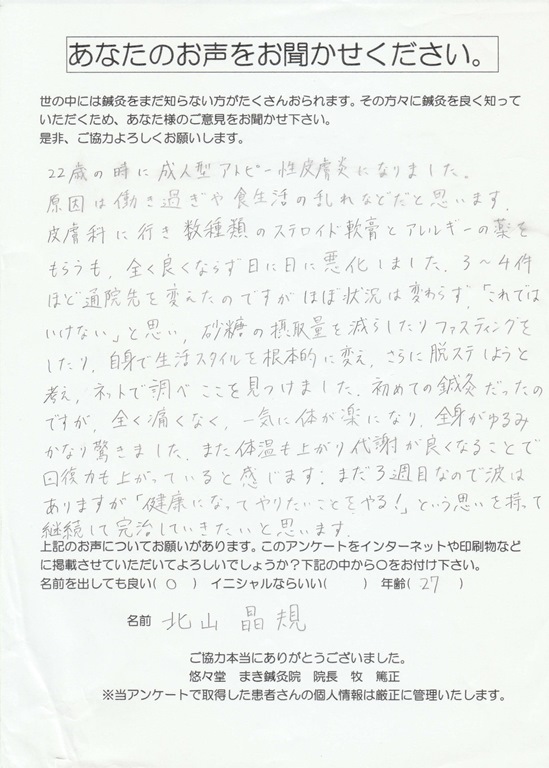 あなたのお声をお聞かせください。
世の中には鍼灸をまだ知らない方がたくさんおられます。その方々に鍼灸を良く知って
いただくため、あなた様のご意見をお聞かせ下さい。
是非、ご協力よろしくお願いします。
22歳の時に成人型アトピー性皮膚炎になりました。
原因は働き過ぎや食生活の乱れなどだと思います。
皮膚科に行き数種類のステロイド軟膏とアレルギーの薬を
もらうも、全く良くならず日に日に悪化しました。3〜4件
ほど通院先を変えたのですがほぼ状況は変わらず、「これでは
いけない」と思い、砂糖の摂取量を減らしたりファスティングを
したり、自身で生活スタイルを根本的に変え、さらに脱ステしようと
考え、ネットで調べここを見つけました。初めての鍼灸だったの
ですが、全く痛くなく、一気に体が楽になり、全身がゆるみ
かなり驚きました。また体温も上がり代謝が良くなることで
回復力も上がっていると感じます。まだ3週目なので波は
ありますが「健康になってやりたいことをやる!」という思いを持って
継続して完治していきたいと思います。
上記のお声についてお願いがあります。このアンケートをインターネットや印刷物など
に掲載させていただいてよろしいでしょうか?下記の中から○をお付け下さい。
名前を出しても良い( ○ ) イニシャルならいい( ) 年齢( 27 )
名前 北山 晶規
ご協力本当にありがとうございました。
悠々堂 まき鍼灸院 院長 牧 篤正
※当アンケートで取得した患者さんの個人情報は厳正に管理いたします。